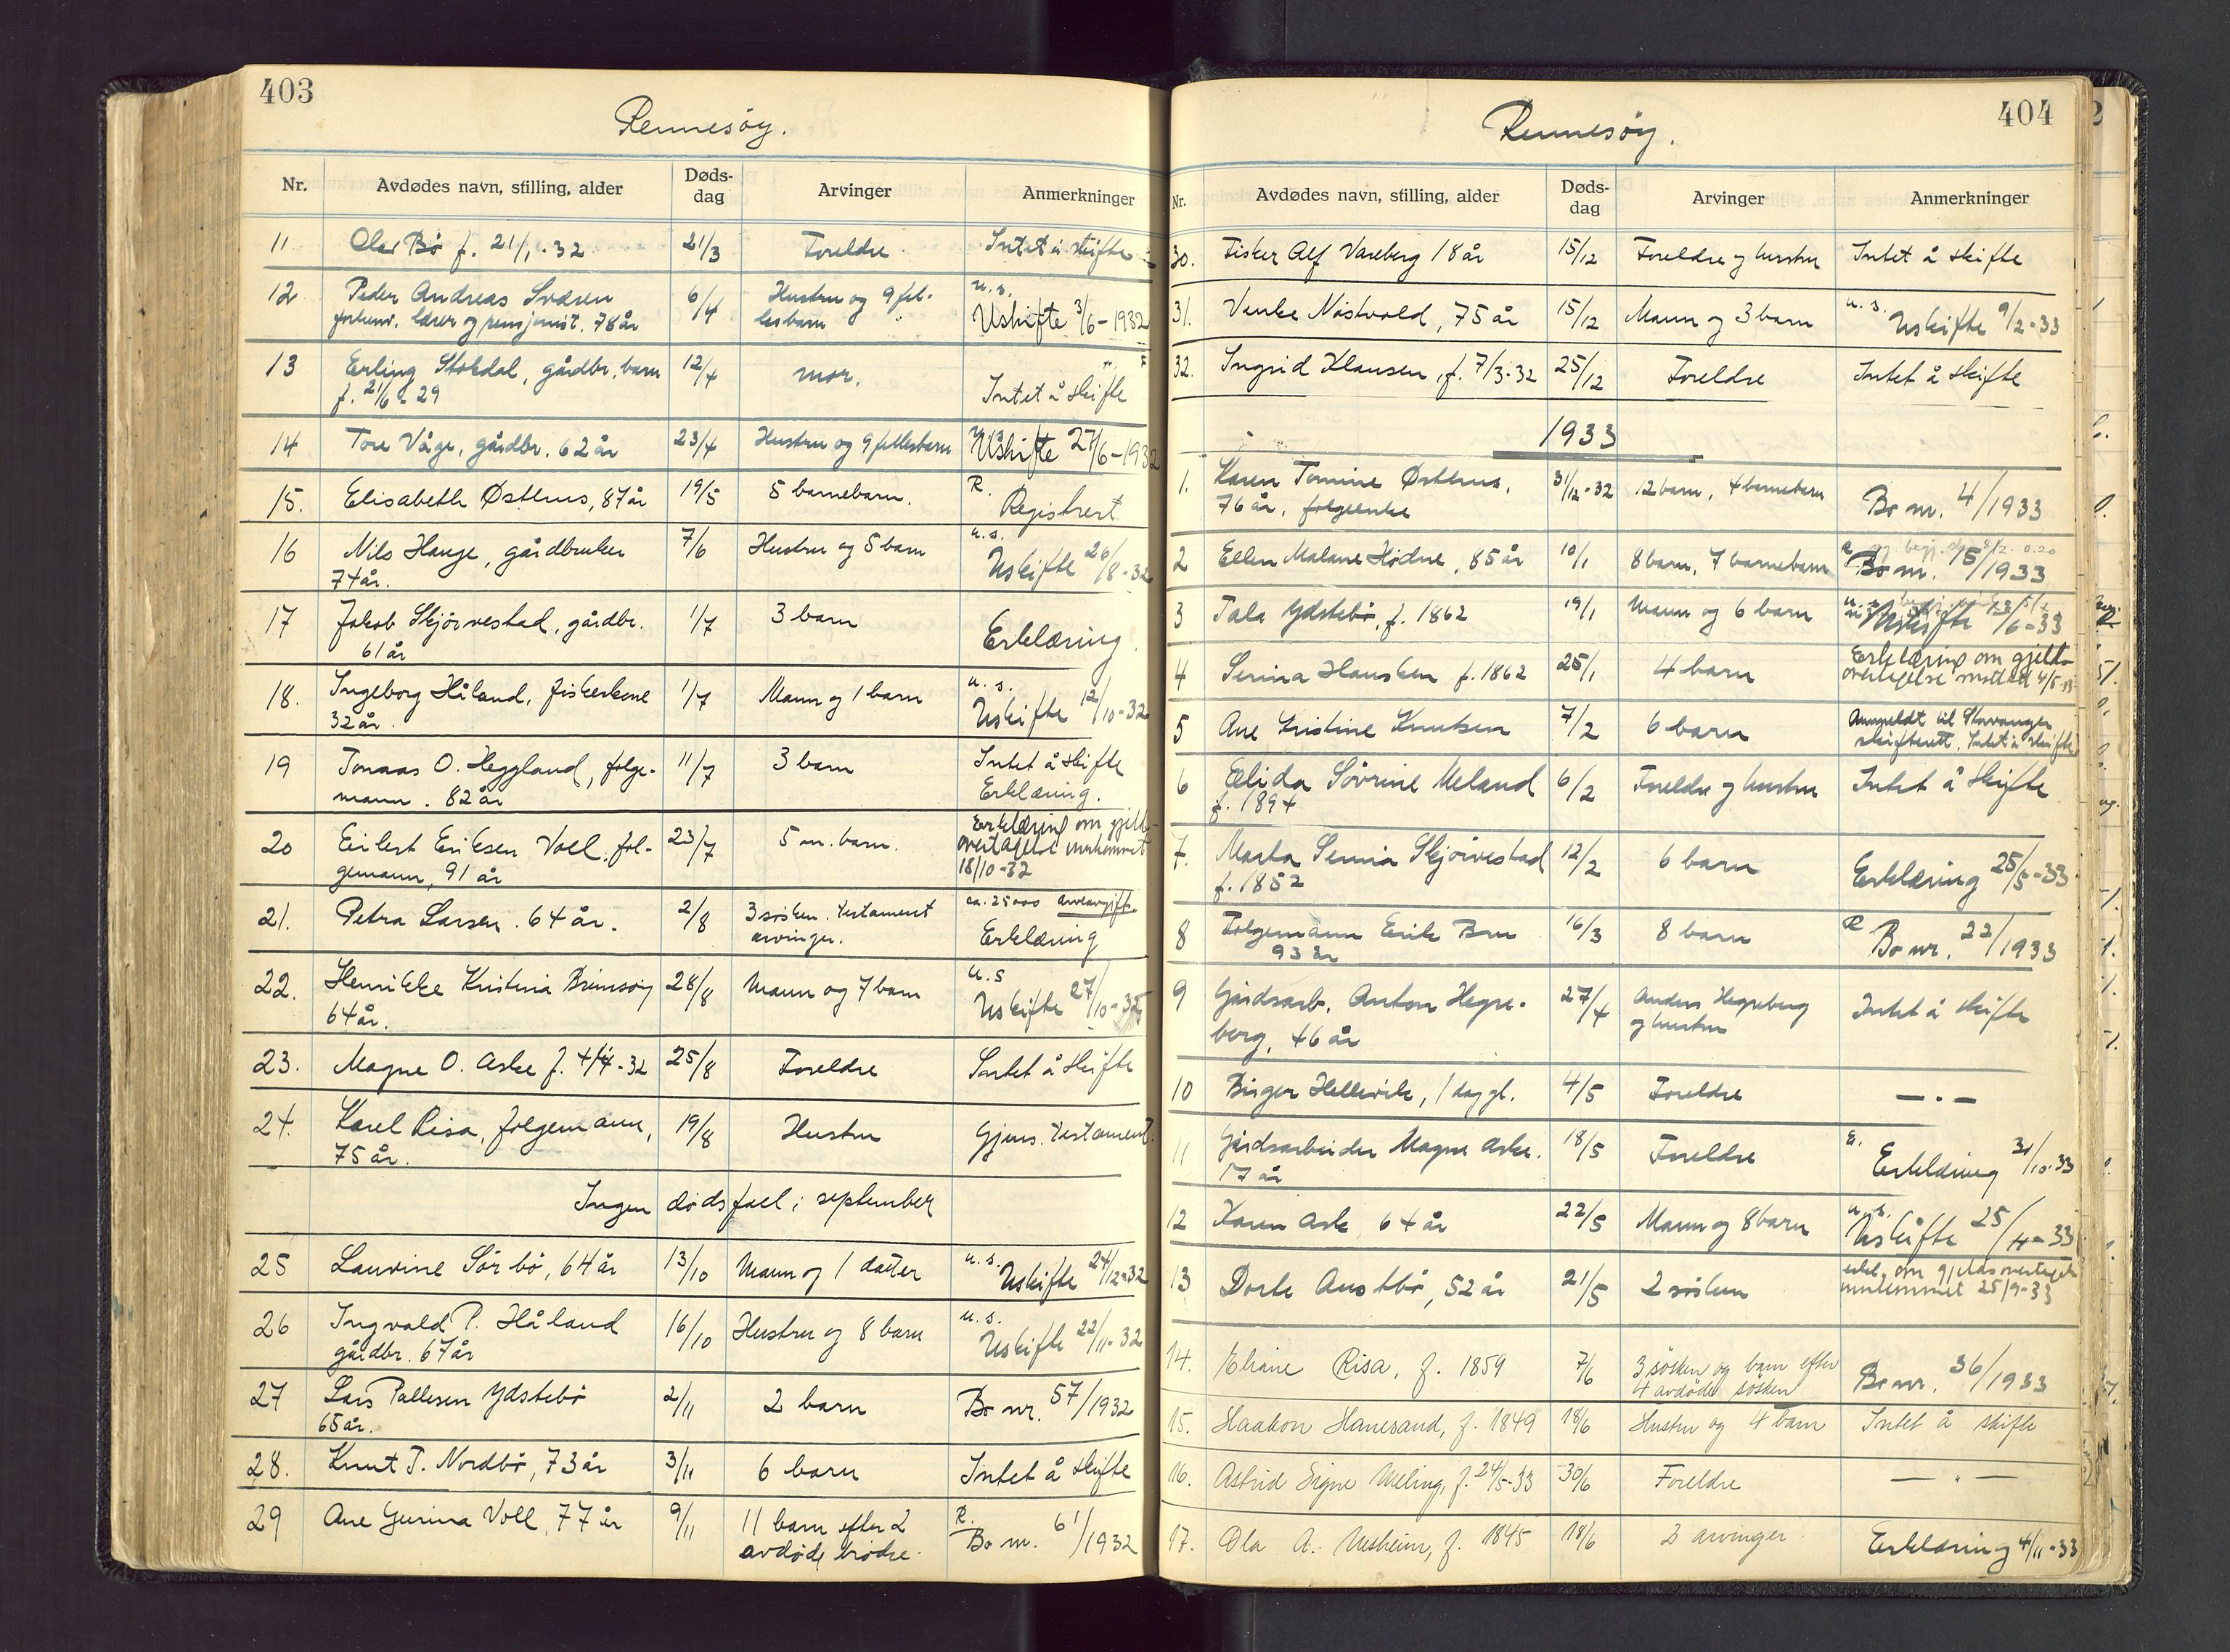 403
Rennesøy.
Nr. Avdødes navn, stilling, alder Døds-dag Arvinger Anmerkninger
11 Olav Bø f. 21/1-32 21/3 Foreldre Intet å skifte
12 Peder Andreas 6/4 Hustru og 9 fel- u.s.
forhenv. lærer og pensjonist. 78 år lesbarn Uskifte 3/6-1932
13 Erling Stokdal, gårdbr. barn 12/4 mor.
f. 21/6-29 Intet å skifte
14 Tore Våge, gårdbr. 62 år 23/4 Hustru og 9 fellesbarn Uskifte 27/6-1932
15. Elisabeth Østhus, 87 år 19/5 5 barnebarn. R. Registrert
16 Nils Hauge, gårdbruker 7/6 Hustru og 5 barn u.s.
74 år. Uskifte 26/8-32
17 Jakob Skjørvestad, gårdbr. 1/7 3 barn
61 år Erklæring.
18. Ingeborg Håland, fiskerkone 1/7 Mann og 1 barn u.s.
32 år. Uskifte 12/10-32
19 Tomas O. Heggland, følge- 11/7 3 barn Intet å skifte
mann. 82 år Erklæring.
20 Eilert Eriksen Voll, føl- 23/7 5 m. barn. Erklæring om gjeld-
gemann, 91 år overtagelse innkommet
18/10-32
21. Petra Larsen. 64 år. 2/8 3 søsken. testament ca. 25000 arveavgift.
arvinger. Erklæring
22. Henrikke Kristina Brimsøy 28/8 Mann og 7 barn u.s
64 år. Uskifte 27/10-32
23. Magne O. Aske f. 4/4-32 25/8 Foreldre Intet å skifte
24. Karel Risa, følgemann, 19/8 Hustru Gjens. testament.
75 år.
Ingen dødsfall i september
25 Laurine Sørbø, 64 år 13/10 Mann og 1 datter u.s. Uskifte 24/12-32
26 Ingvald P. Håland 16/10 Hustru og 8 barn u.s.
gårdbr. 67 år Uskifte 22/11-32
27 Lars Pallesen Ydstebø 2/11 2 barn Bo nr. 57/1932
65 år.
28. Knut T. Nordbø, 73 år 3/11 6 barn Intet å skifte
29 Ane Gurina Voll, 77 år 9/11 11 barn efter 2 R.
avdøde brødre. Bo nr. 61/1932
404
Rennesøy.
Nr. Avdødes navn, stilling, alder Døds-dag Arvinger Anmerkninger
30. Fisker Alf Vareberg 18 år 15/12 Foreldre og hustru Intet å skifte
31. Venke Nåstvold, 75 år 15/12 Mann og 3 barn u.s. Uskifte 9/2-33
32. Ingrid Klausen, f. 7/3-32 25/12 Foreldre Intet å skifte
1933
1. Karen Tomine Østhus, 31/12-32 12 barn, 4 barnebarn
76 år, følgeenke Bo nr. 4/1933
2 Ellen Malane Hodne, 85 år 10/1 8 barn, 7 barnebarn R Bo nr. 15/1933
3 Tala Ydstebø, f. 1862 19/1 Mann og 6 barn u.s. Uskifte 13/6-33
4 Serina Hausken f. 1862 25/1 4 barn Erklæring om gjelds-
overtagelse mottatt 4/5-33
5 Ane Kristine Knutsen 7/2 6 barn Anmeldt til Stavanger
skifterett. Intet å skifte
6 Elida Søvrine Meland 6/2 Foreldre og hustru Intet å skifte
f. 1894
7. Marta Serina Skjørvestad 12/2 6 barn
f. 1852 Erklæring 25/5-33
8 Følgemann Erik Bru 16/3 8 barn R
93 år Bo nr. 22/1933
9 Gårdsarb. Anton Hegre- 27/4 Anders Hegreberg Intet å skifte
berg, 46 år og hustru
10 Birger Hellevik, 1 dag gl. 4/5 Foreldre — . —
11 Gårdsarbeider Magne Aske. 18/5 Foreldre E.
17 år Erklæring 31/10-33
12 Karen Ask 64 år 22/5 Mann og 8 barn u.s.
Uskifte 25/11-33
13 Dorte Austbø, 52 år 21/5 2 søsken erkl. om gjeldsovertagelse
innkommet 25/9-33
14. Eliane Risa, f. 1859 7/6 3 søsken og barn efter
4 avdøde søsken Bo nr. 36/1933
15. Haakon Hanesand, f. 1849 18/6 Hustru og 4 barn Intet å skifte
16. Astrid Signe Meling, f. 24/5-33 30/6 Foreldre — " —
17. Ola A. Vesheim, f. 1845 18/6 2 arvinger Erklæring 4/11-33